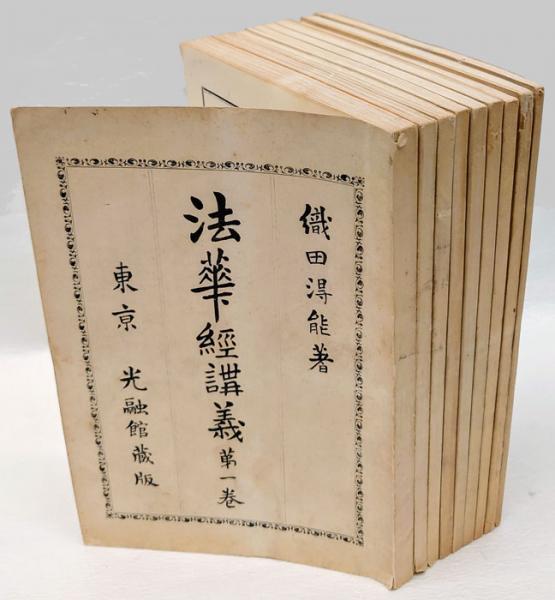 織田淂能著
法華經講義 第一卷
東京 光融館藏版